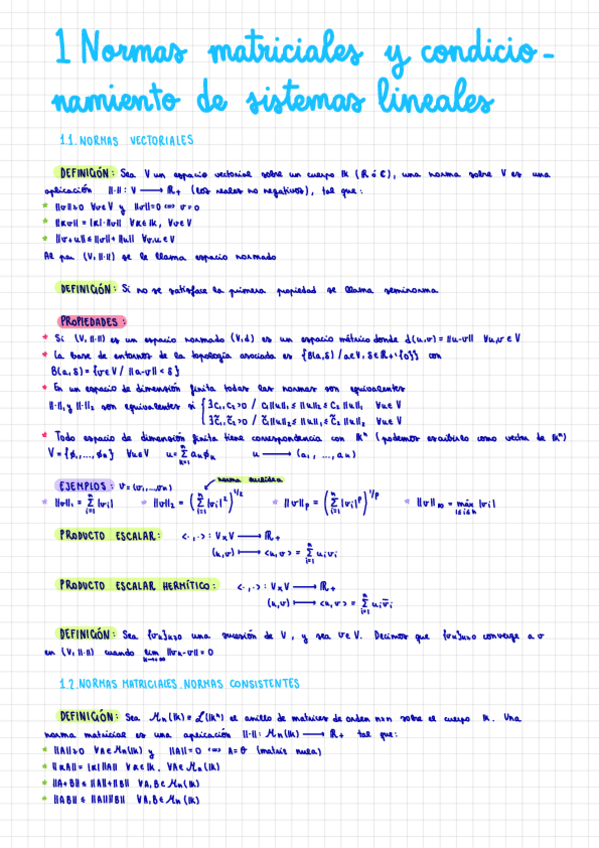 1 Normas matriciales y condicio-
namiento de sistemas lineales
1.1. NORMAS VECTORIALES
DEFINICIÓN: Sea V un espacio vectorial sobre un cuerpo 𝕂 (ℝ ó ℂ), una norma sobre V es una
aplicación ||·||: V ⟶ ℝ₊ (los reales no negativos), tal que:
* ||v||≥0 ∀v∈V y ||v||=0 ⟺ v=0
* ||αv|| = |α|·||v|| ∀α∈𝕂, ∀v∈V
* ||v+u||≤||v||+||u|| ∀v,u∈V
Al par (V, ||·||) se le llama espacio normado
DEFINICIÓN: Si no se satisface la primera propiedad se llama seminorma
PROPIEDADES:
* Si (V, ||·||) es un espacio normado (V,d) es un espacio métrico donde d(u,v)=||u-v|| ∀u,v∈V
* La base de entornos de la topología asociada es {B(a,δ) / a∈V, δ∈ℝ₊\{0}} con
B(a,δ) = {v∈V / ||a-v|| < δ}
* En un espacio de dimensión finita todas las normas son equivalentes
||·||₁ y ||·||₂ son equivalentes si { ∃C₁,C₂>0 / C₁||u||₁ ≤ ||u||₂ ≤ C₂||u||₁ ∀u∈V
∃C̃₁,C̃₂>0 / C̃₁||u||₂ ≤ ||u||₁ ≤ C̃₂||u||₂ ∀u∈V
* Todo espacio de dimensión finita tiene correspondencia con 𝕂ⁿ (podemos escribirlo como vector de 𝕂ⁿ)
V = {ϕ₁,...,ϕₙ} ∀u∈V u = Σₖ₌₁ⁿ aₖϕₖ u ⟶ (a₁, ..., aₙ)
EJEMPLOS: v=(v₁,...,vₙ) norma euclídea
* ||v||₁ = Σᵢ₌₁ⁿ |vᵢ| * ||v||₂ = (Σᵢ₌₁ⁿ |vᵢ|²)^1/2 * ||v||p = (Σᵢ₌₁ⁿ |vᵢ|^p)^1/p * ||v||∞ = máx 1≤i≤n |vᵢ|
PRODUCTO ESCALAR: <·,·>: V×V ⟶ ℝ₊
(u,v) ⟼ <u,v> = Σᵢ₌₁ⁿ uᵢvᵢ
PRODUCTO ESCALAR HERMÍTICO: <·,·>: V×V ⟶ ℝ₊
(u,v) ⟼ <u,v> = Σᵢ₌₁ⁿ uᵢv̄ᵢ
DEFINICIÓN: Sea {vₖ}ₖ≥₀ una sucesión de V, y sea v∈V. Decimos que {vₖ}ₖ≥₀ converge a v
en (V, ||·||) cuando lim k→∞ ||vₖ-v||=0
1.2. NORMAS MATRICIALES. NORMAS CONSISTENTES
DEFINICIÓN: Sea ℳₙ(𝕂) ≡ ℒ(𝕂ⁿ) el anillo de matrices de orden n×n sobre el cuerpo 𝕂. Una
norma matricial es una aplicación ||·||: ℳₙ(𝕂) ⟶ ℝ₊ tal que:
* ||A||≥0 ∀A∈ℳₙ(𝕂) y ||A||=0 ⟺ A=θ (matriz nula)
* ||αA|| = |α|||A|| ∀α∈𝕂, ∀A∈ℳₙ(𝕂)
* ||A+B|| ≤ ||A||+||B|| ∀A,B∈ℳₙ(𝕂)
* ||AB|| ≤ ||A||||B|| ∀A,B∈ℳₙ(𝕂)